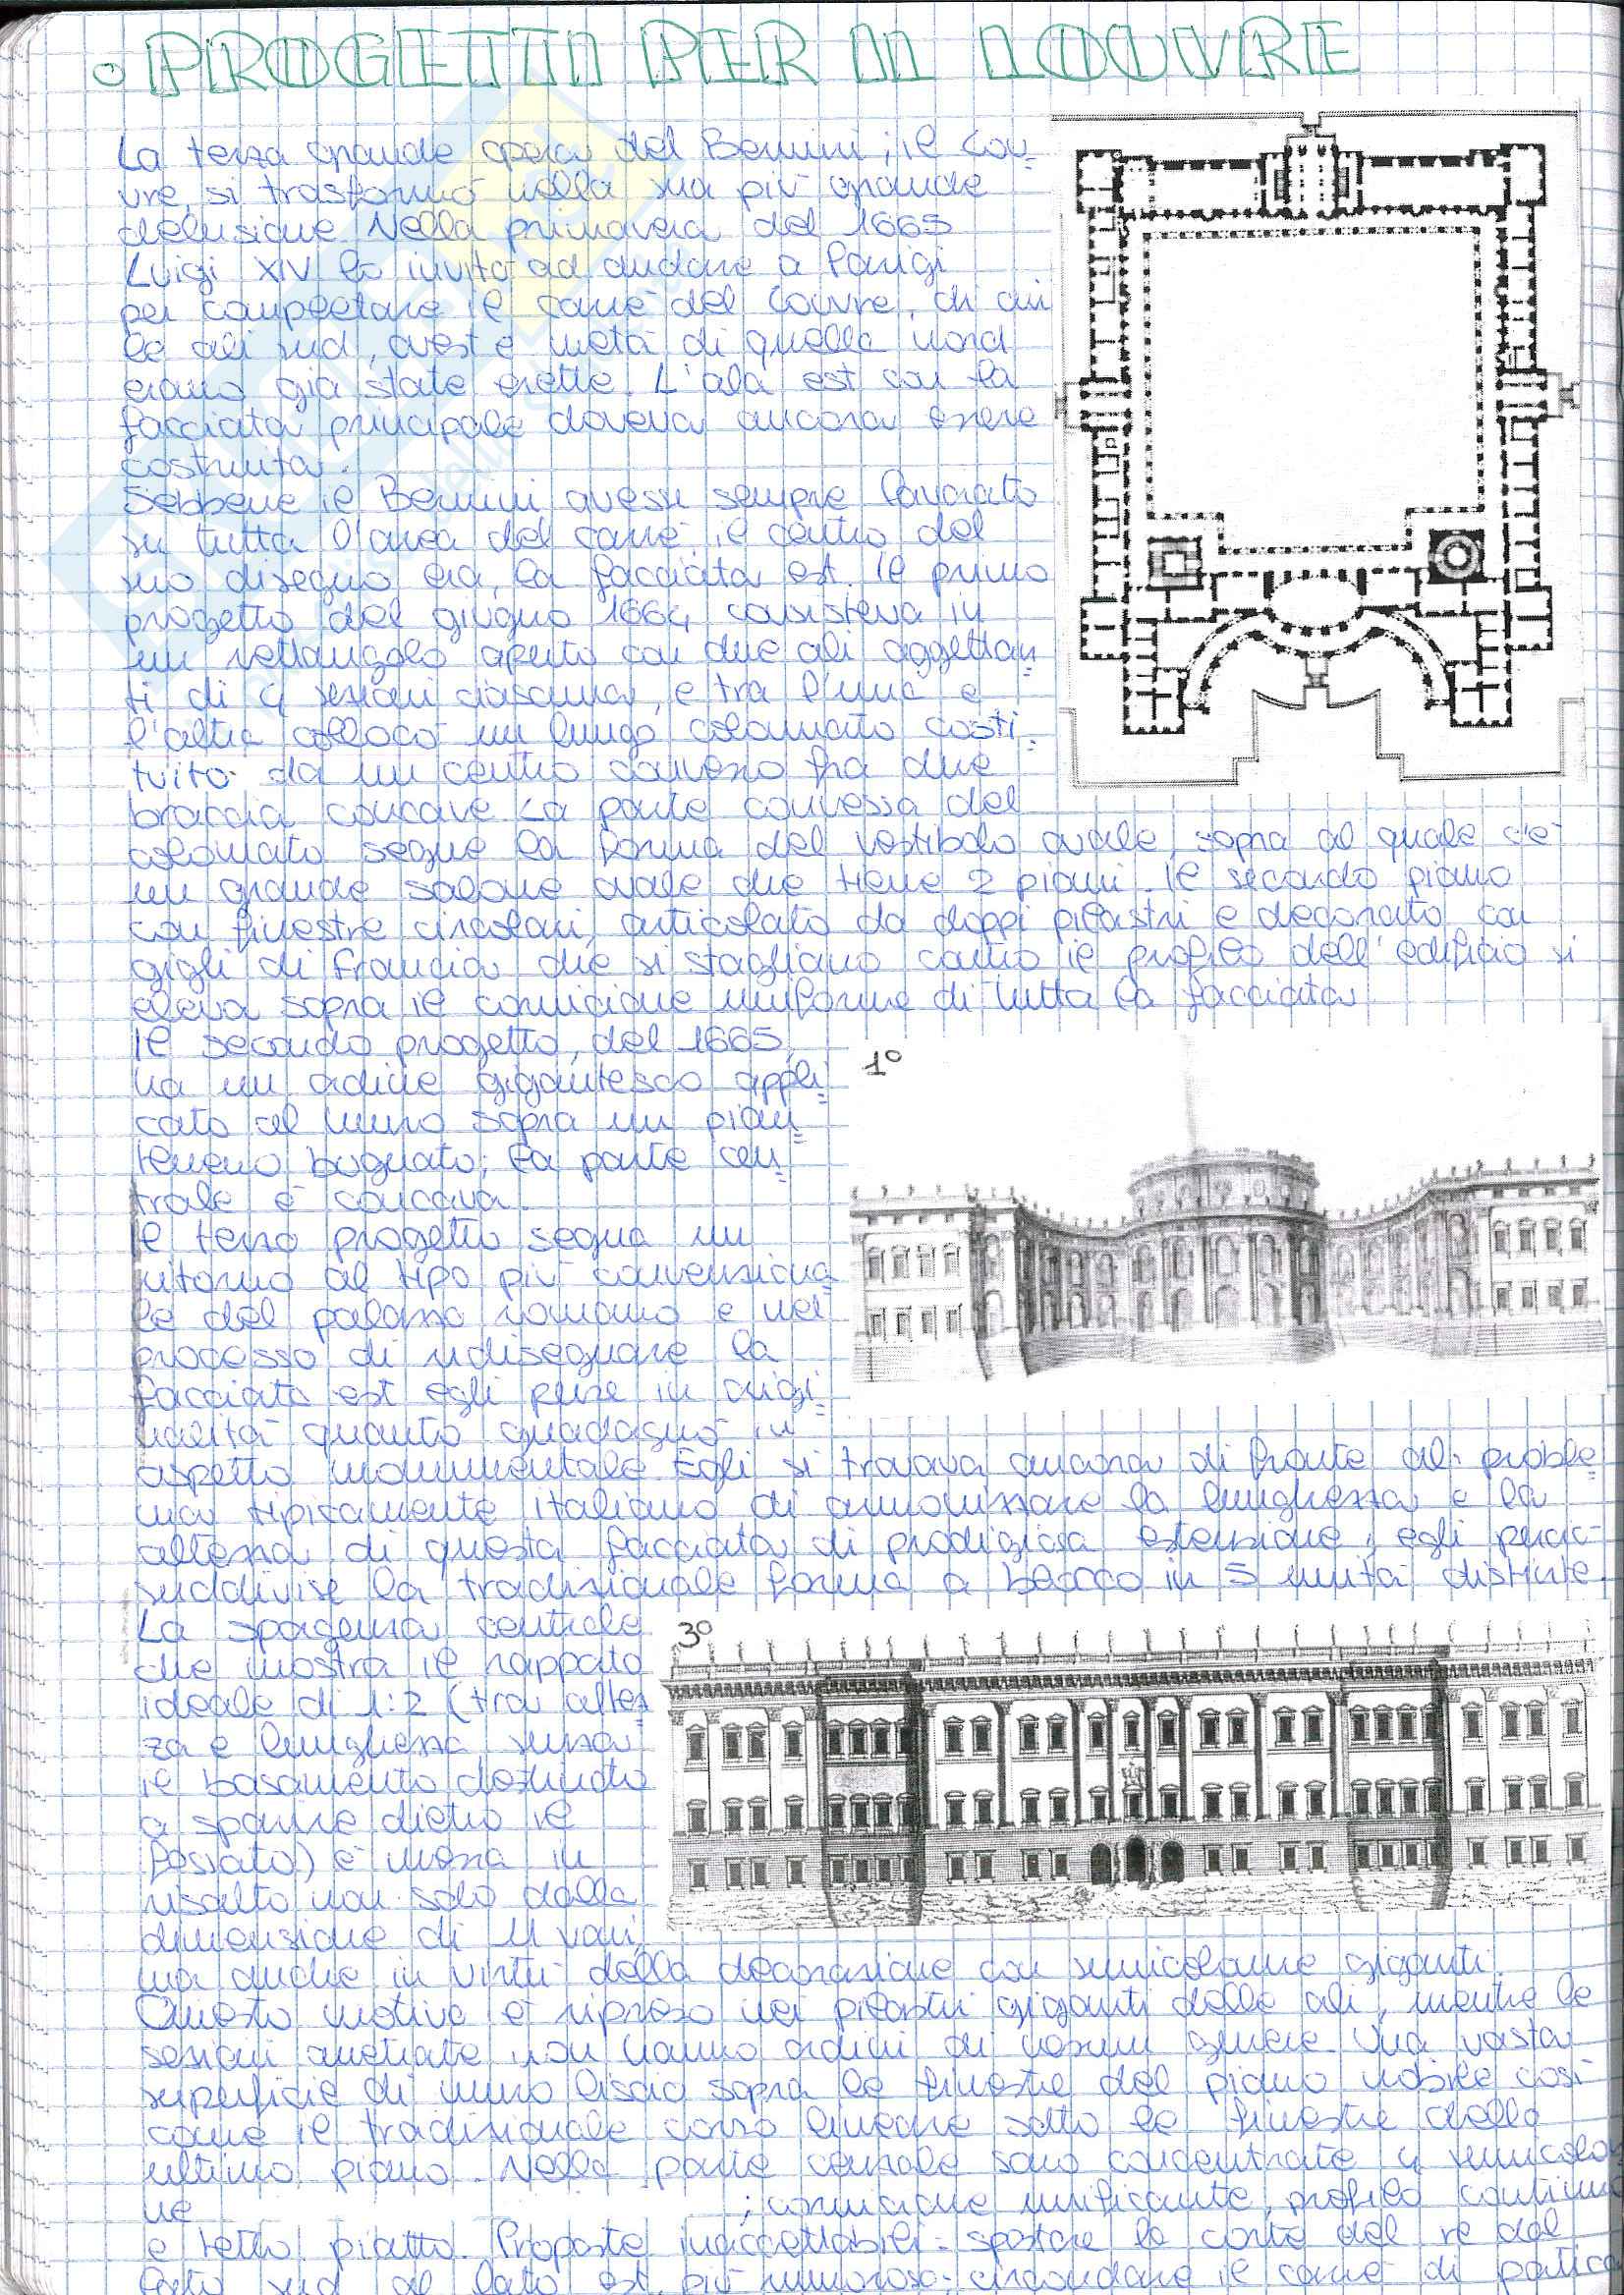 PROGETTI PER IL LOUVRE
La terza grande opera del Bernini, il Lou-
vre, si trasformò nella sua più grande
delusione. Nella primavera del 1665
Luigi XIV lo invitò ad andare a Parigi
per completare il carré del Louvre, di cui
le ali sud, ovest e metà di quella nord
erano già state erette. L'ala est con la
facciata principale doveva ancora essere
costruita.
Sebbene il Bernini avesse sempre lavorato
su tutta l'area del carré, il centro del
suo disegno era la facciata est. Il primo
progetto del giugno 1664 consisteva in
un rettangolo aperto con due ali aggettan-
ti di 4 sezioni ciascuna, e tra l'una e
l'altra collocò un lungo colonnato costi-
tuito da un centro convesso fra due
braccia concave. La parte convessa del
colonnato segue la forma del vestibolo ovale, sopra al quale c'è
un grande salone ovale che tiene 2 piani. Il secondo piano
con finestre circolari, articolato da doppi pilastri e decorato con
gigli di Francia che si stagliano contro il profilo dell'edificio si
eleva sopra il cornicione uniforme di tutta la facciata
Il secondo progetto, del 1665,
ha un ordine gigantesco appli-
cato al muro sopra un pian-
terreno bugnato; la parte cen-
trale è concava.
1°
Il terzo progetto segna un
ritorno al tipo più convenziona
le del palazzo romano e nel
processo di ridisegnare la
facciata est egli perse in origi-
nalità quanto guadagnò in
aspetto monumentale. Egli si trovava ancora di fronte al proble-
ma tipicamente italiano di armonizzare la lunghezza e la
altezza di questa facciata di prodigiosa estensione, egli perciò
suddivise la tradizionale forma a blocco in 5 unità distinte.
La sporgenza centrale
che mostra il rapporto
ideale di 1:2 (tra altez-
za e lunghezza senza
il basamento destinato
a sparire dietro il
fossato) è messa in
risalto non solo dalla
dimensione di 11 vani,
3°
ma anche in virtù della decorazione con semicolonne giganti.
Questo motivo è ripreso nei pilastri giganti delle ali, mentre le
sezioni arretrate non hanno ordini di nessun genere. Una vasta
superficie di muro liscio sopra le finestre del piano nobile così
come il tradizionale corso lineare sotto le finestre dello
ultimo piano. Nella parte centrale sono concentrate 4 semicolon
ne ; cornicione unificante, profilo continuo
e tetto piatto. Proposte inaccettabili: spostare la corte del re dal
lato sud al lato est, più rumoroso; circondare il carré di portica